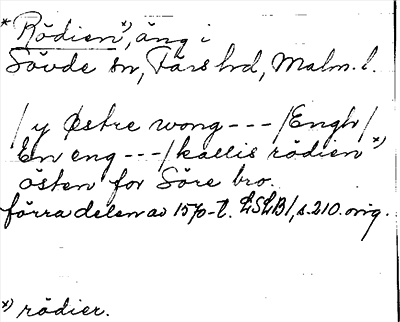 * Rödien *), äng i
Sövde sn, Färs hd, Malm. l.
/ y Østre wong --- / Engh /
En eng --- / kallis rödien *)
östen for Söre bro.
förra delen av 1570-t. LSLB1, s. 210. orig.
*) rödier.